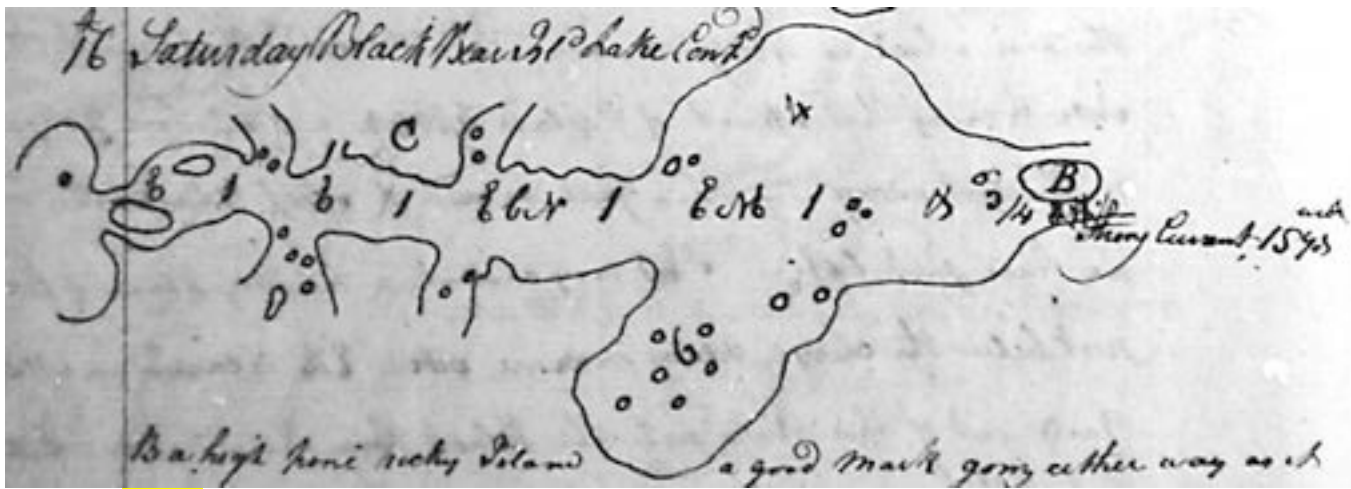 16 Saturday Black Bear Isld Lake Contd
C
4
E 1 E 1 EbN 1 ENE 1 3/4
B
Strong Current 15 yds
6
B a high pine rocky Island a good mark going either way as it